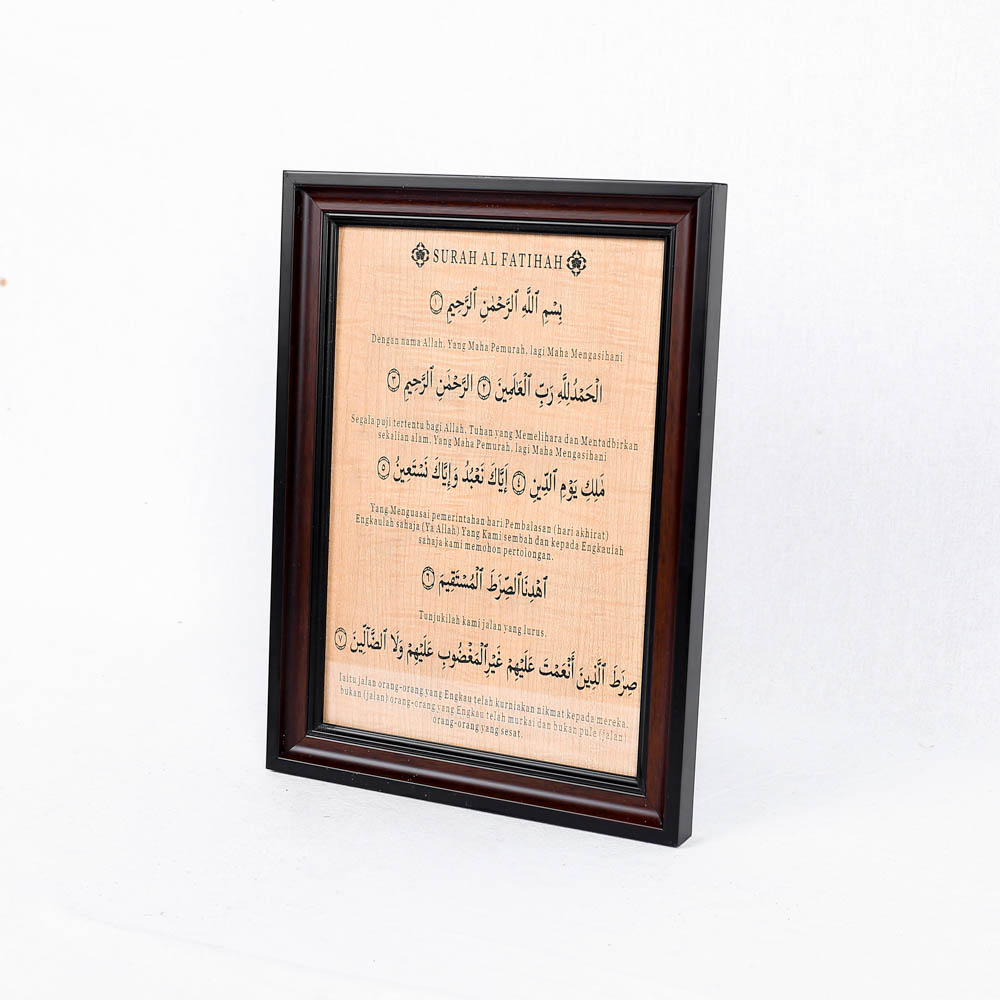 SURAH AL FATIHAH
بِسْمِ ٱللَّهِ ٱلرَّحْمَٰنِ ٱلرَّحِيمِ ١
Dengan nama Allah, Yang Maha Pemurah, lagi Maha Mengasihani
الْحَمْدُلِلَّهِ رَبِّ ٱلْعَٰلَمِينَ ٢ الرَّحْمَٰنِ ٱلرَّحِيمِ ٣
Segala puji tertentu bagi Allah, Tuhan yang Memelihara dan Mentadbirkan
sekalian alam, Yang Maha Pemurah, lagi Maha Mengasihani
مَٰلِكِ يَوْمِ ٱلدِّينِ ٤ إِيَّاكَ نَعْبُدُ وَإِيَّاكَ نَسْتَعِينُ ٥
Yang Menguasai pemerintahan hari Pembalasan (hari akhirat)
Engkaulah sahaja (Ya Allah) Yang Kami sembah dan kepada Engkaulah
sahaja kami memohon pertolongan.
ٱهْدِنَاٱلصِّرَٰطَ ٱلْمُسْتَقِيمَ ٦
Tunjukilah kami jalan yang lurus.
صِرَٰطَ ٱلَّذِينَ أَنْعَمْتَ عَلَيْهِمْ غَيْرِٱلْمَغْضُوبِ عَلَيْهِمْ وَلَا ٱلضَّآلِّينَ ٧
Iaitu jalan orang-orang yang Engkau telah kurniakan nikmat kepada mereka,
bukan (jalan) orang-orang yang Engkau telah murkai dan bukan pule (jalan)
orang-orang yang sesat.